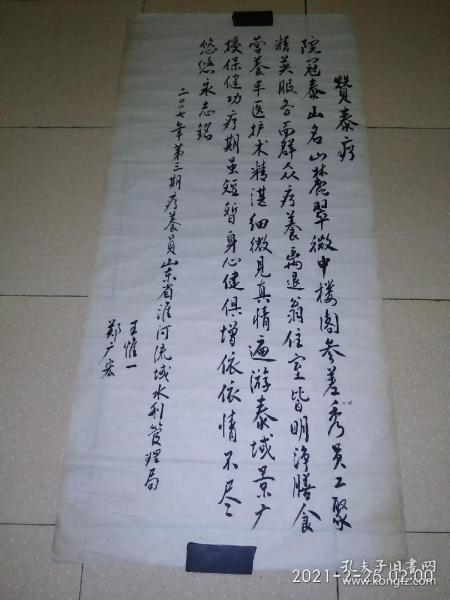 赞泰疗
院冠泰山名山麓翠微中楼阁参差秀员工聚
精英服务而群众疗养离退翁住室皆明净膳食
营养丰医护术精湛细微见真情遍游泰域景广
授保健功疗期虽短暂身心健俱增依依情不尽
悠悠永志铭
二〇〇七年第三期疗养员山东省淮河流域水利管理局
王惟一
郑广宏
孔夫子旧书网
2021-2-26 02:00